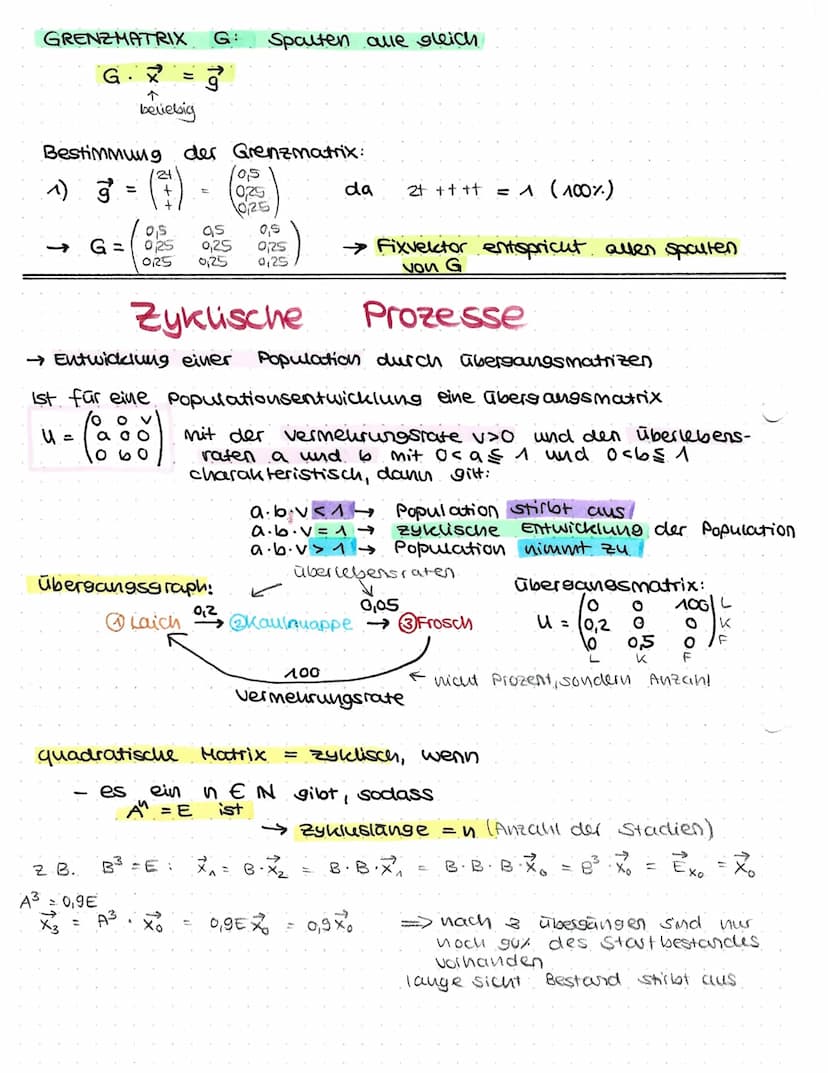 GRENZMATRIX G: Spalten alle gleich
G · x⃗ = g⃗
↑
beliebig
Bestimmung der Grenzmatrix:
1) g⃗ = (2t t t) = (0,5 0,25 0,25) da 2t + t + t = 1 (100%)
→ G = (0,5 0,5 0,5
0,25 0,25 0,25
0,25 0,25 0,25) → Fixvektor entspricht allen Spalten
von G
Zyklische Prozesse
→ Entwicklung einer Population durch Übergangsmatrizen
Ist für eine Populationsentwicklung eine Übergangsmatrix
U = (0 0 v
a 0 0
0 b 0) mit der Vermehrungsrate v>0 und den Überlebens-
raten a und b mit 0<a≤1 und 0<b≤1
charakteristisch, dann gilt:
a·b·v < 1 → Population stirbt aus
a·b·v = 1 → zyklische Entwicklung der Population
a·b·v > 1 → Population nimmt zu
Überlebensraten
Übergangsgraph:
① Laich 0,2 → ② Kaulquappe 0,05 → ③ Frosch
100
Vermehrungsrate
← nicht Prozent, sondern Anzahl
Übergangsmatrix:
U = (0 0 100
0,2 0 0
0 0,5 0) L K F
L K F
quadratische Matrix = zyklisch, wenn
- es ein n ∈ ℕ gibt, sodass
Aⁿ = E ist
→ Zykluslänge = n (Anzahl der Stadien)
z.B. B³ = E : x⃗₁ = B·x⃗₂ = B·B·x⃗₁ = B·B·B·x⃗₀ = B³·x⃗₀ = E⃗x₀ = x⃗₀
A³ = 0,9E
x⃗₃ = A³ · x⃗₀ = 0,9E x⃗₀ = 0,9x⃗₀ ⇒ nach 3 Übergängen sind nur
noch 90% des Startbestandes
vorhanden
lange Sicht Bestand stirbt aus